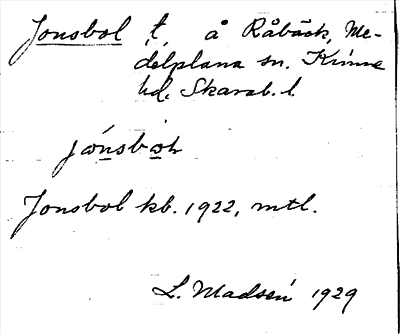 Jonsbol t. å Råbäck, Me-
delplana sn. Kinne
hd. Skarab. l.
Jonsbol kb. 1922, mtl.
L. Madsén 1929